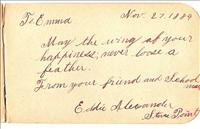 To Emma Nov. 27. 1889
May the wing of your
happiness, never loose a
feather.
From your friend and School
mate
Eddie Alexander
Stone Point